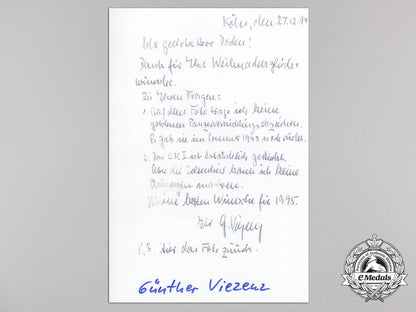 Köln, den 27.12.94
Sehr geehrter Herr Doden!
Dank für Ihre Weihnachtsglück-
wünsche.
Zu Ihren Fragen:
1. Auf dem Foto trage ich keine
goldenen Panzervernichtungsabzeichen.
Es gab sie im Sommer 1943 noch nicht.
2. Das EK I ist tatsächlich
Über die kann ich keine
machen.
Für die besten Wünsche für 1995.
Ihr G. Viezenz
P.S. hier das Foto zurück.
Günther Viezenz
eMedals